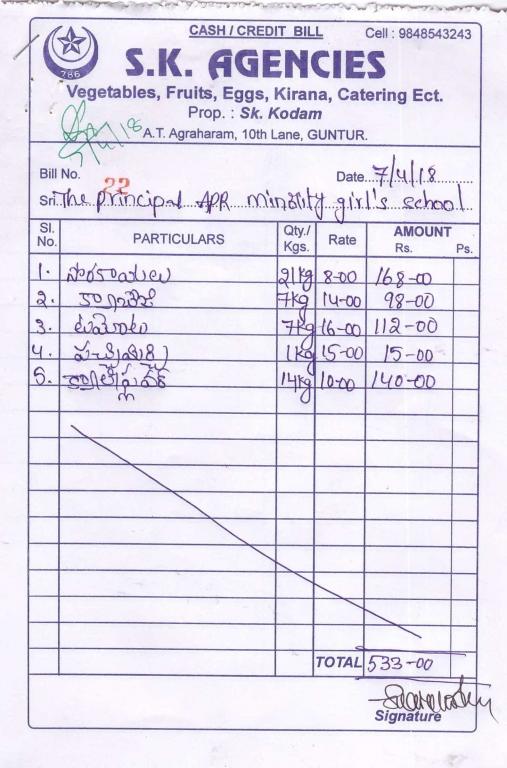 CASH / CREDIT BILL
Cell : 9848543243
786
S.K. AGENCIES
Vegetables, Fruits, Eggs, Kirana, Catering Ect.
Prop. : Sk. Kodam
A.T. Agraharam, 10th Lane, GUNTUR.
Bill No. 22 Date 7/4/18
Sri. The principal APR minority girl's school
Sl. No. PARTICULARS Qty./ Kgs. Rate AMOUNT Rs. Ps.
1. సొరకాయలు 21kg 8-00 168-00
2. క్యాబేజి 7kg 14-00 98-00
3. టమోటలు 7kg 16-00 112-00
4. పచ్చిమిర్చి 1kg 15-00 15-00
5. 14kg 10-00 140-00
TOTAL 533-00
Signature